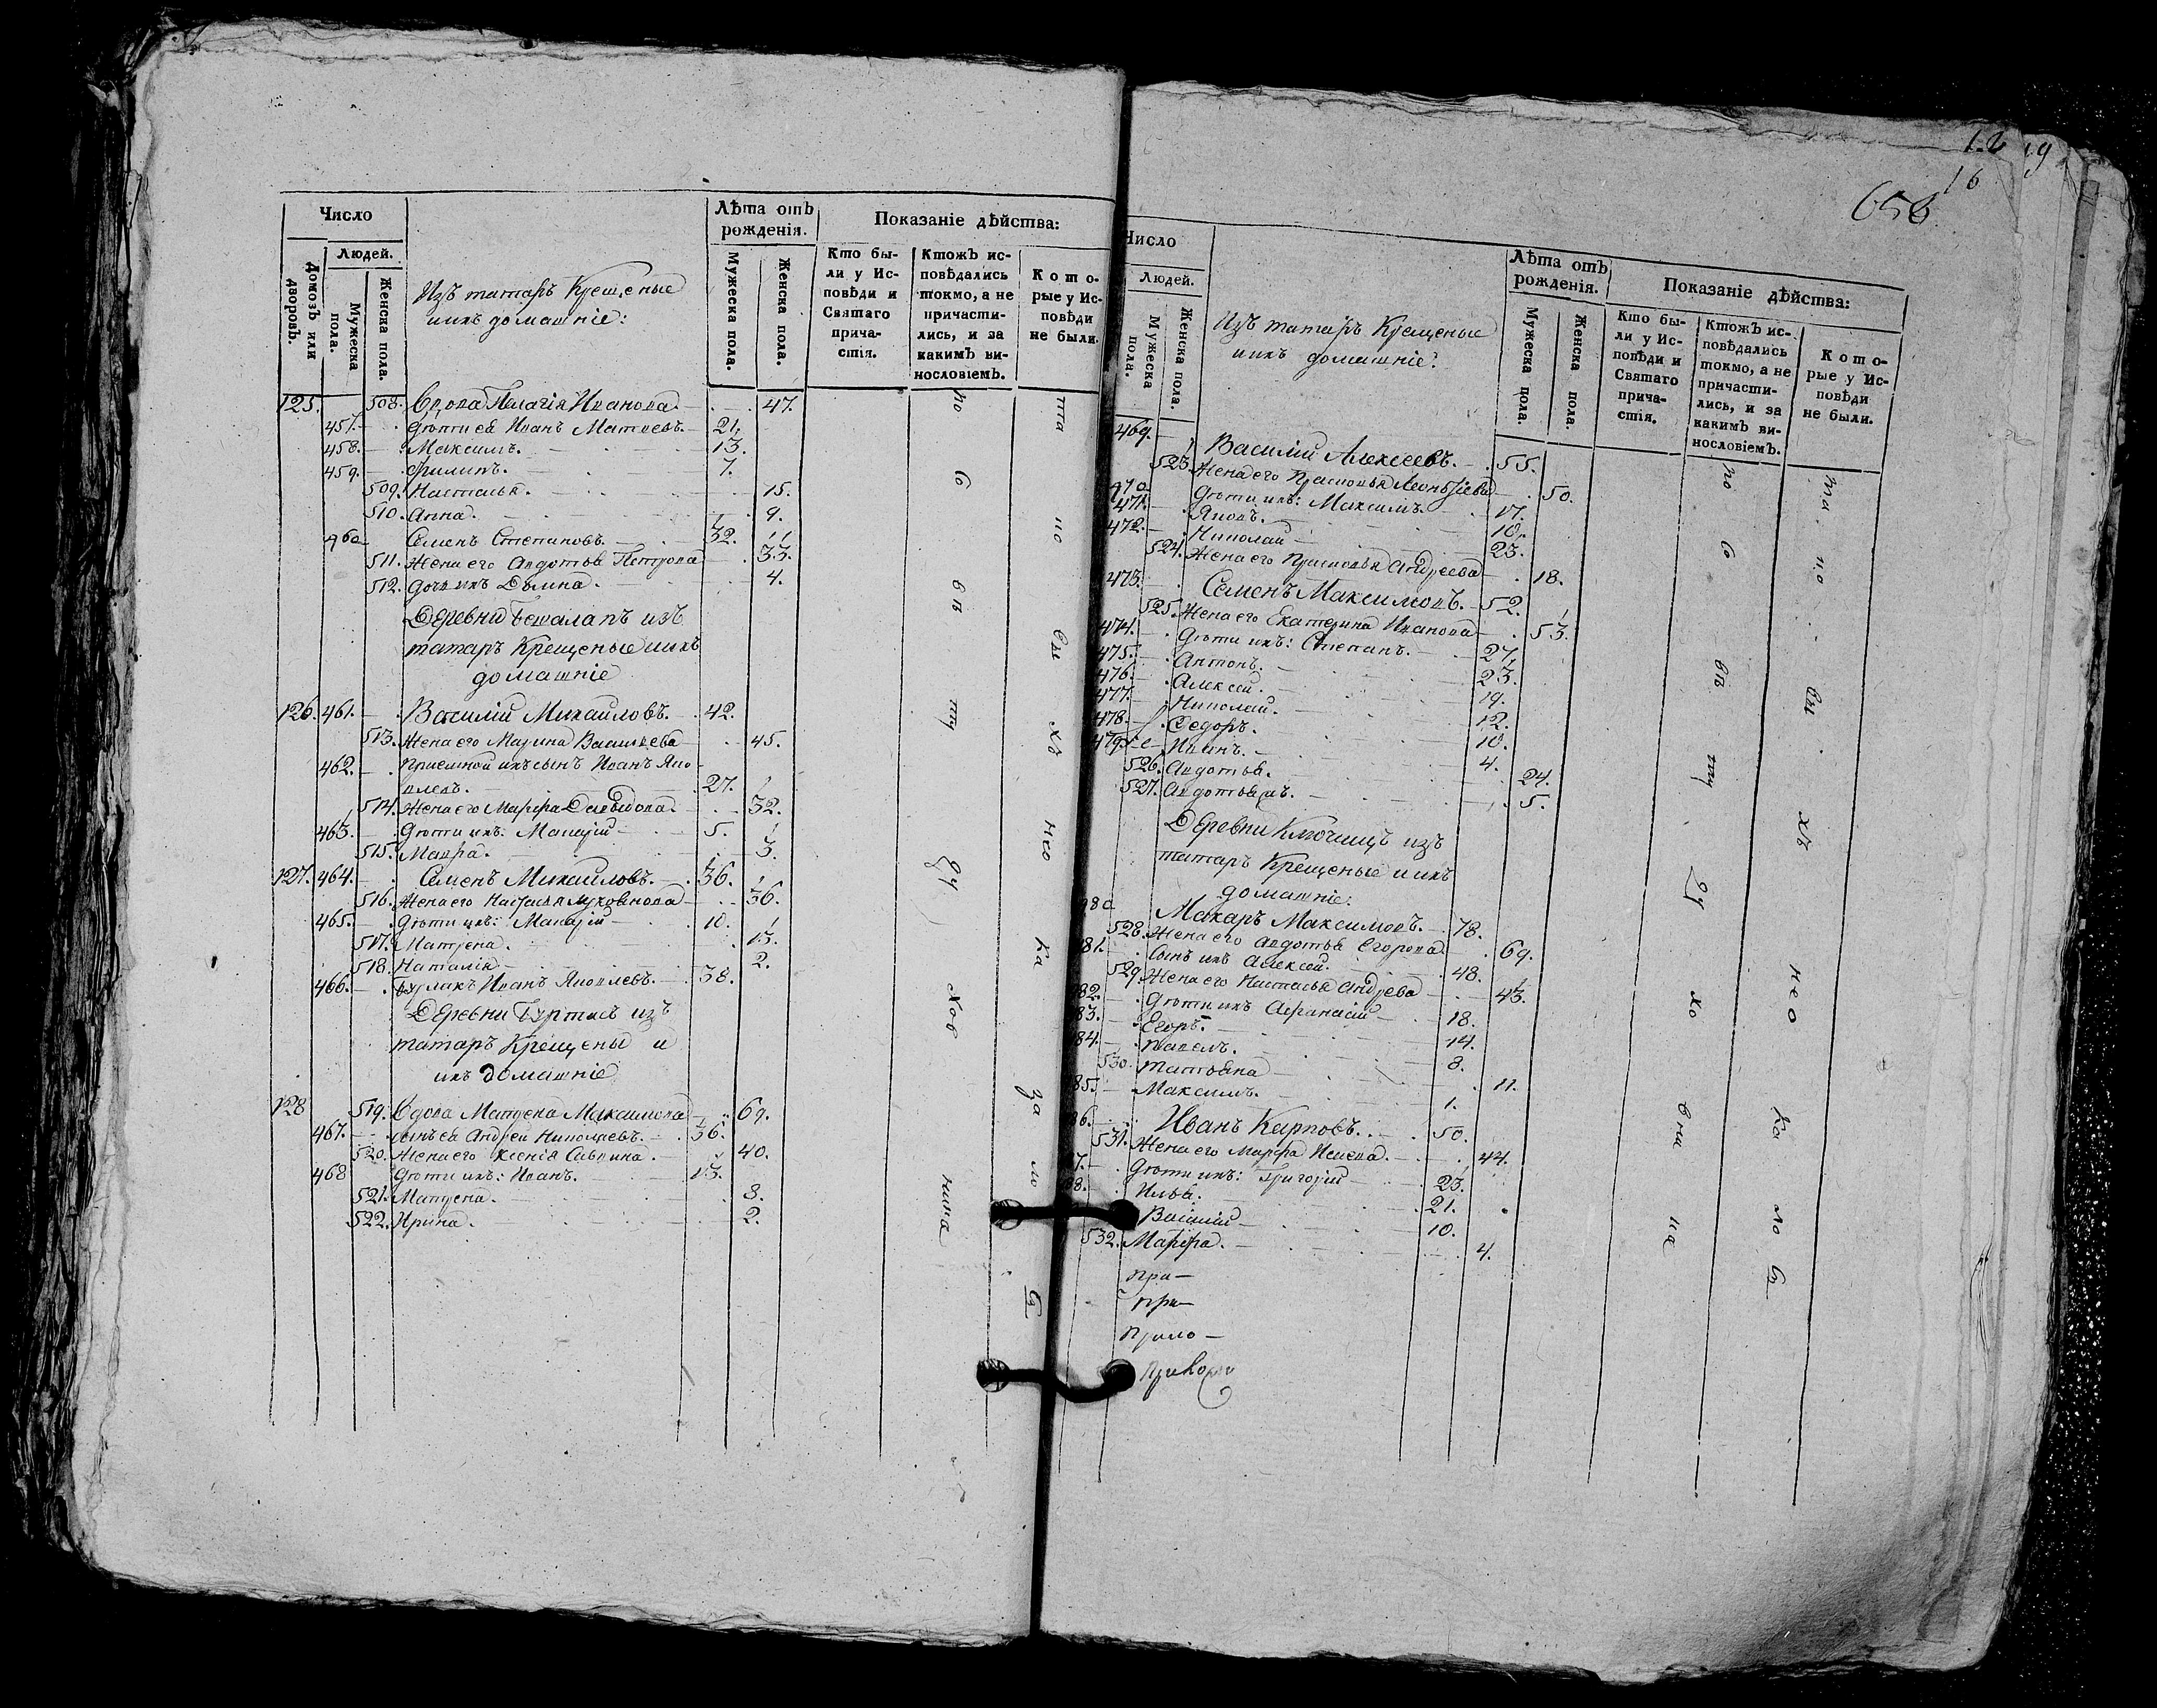 Число
Людей.
Домовъ или дворовъ.
Мужеска пола.
Женска пола.
Изъ татаръ Крещеные
иихъ домашніе:
Лѣта отъ рожденія.
Мужеска пола.
Женска пола.
Показаніе дѣйства:
Кто бы-
ли у Ис-
повѣди и
Святаго
прича-
стія.
Ктожъ ис-
повѣдались
токмо, а не
причасти-
лись, и за
какимъ ви-
нословіемъ.
Кото-
рые у Ис-
повѣди
не были.
125. 508. Вдова Пелагія Иванова 47.
457. Дѣти ея Иванъ Матвеевъ 21.
458. Максимъ. 13.
459. Филипъ. 7.
509. Настасья. 15.
510. Анна. 9.
460 Семенъ Степановъ. 32.
511. Жена его Авдотья Петрова 33.
512. Дочь ихъ Домна. 4.
Деревни изъ
татаръ Крещеные иихъ
домашніе
126. 461. Василій Михаиловъ. 42.
513. Жена его Марина Васильева 45.
462. Приемной ихъ сынъ Иванъ Яко
влевъ. 27.
514. Жена его Марфа Давыдова. 32.
463. Дѣти ихъ: Макарій 5.
515. Мавра. 3.
127. 464. Семенъ Михаиловъ. 36.
516. Жена его 36.
465. Дѣти ихъ: Макарій 10.
517. Матрена. 13.
518. Наталія 2.
466. Бурлакъ Иванъ Яковлевъ. 38.
Деревни Буртасъ изъ
татаръ Крещены и
ихъ домашніе
128 519. Вдова Матрена Максимова 69.
467. Сынъ ея Андрей Николаевъ. 36.
520. Жена его Ксенія Саввина. 40.
468 Дѣти ихъ: Иванъ. 13.
521. Матрена. 8.
522. Ирина. 2.
по со въ ту ду хов ника
та но вы хъ нео ка за ло ся
12 19
16
656
Число
Людей.
Мужеска пола.
Женска пола.
Изъ татаръ Крещеные
иихъ домашніе:
Лѣта отъ рожденія.
Мужеска пола.
Женска пола.
Показаніе дѣйства:
Кто бы-
ли у Ис-
повѣди и
Святаго
прича-
стія.
Ктожъ ис-
повѣдались
токмо, а не
причасти-
лись, и за
какимъ ви-
нословіемъ.
Кото-
рые у Ис-
повѣди
не были.
469. Василій Алексеевъ. 55.
523. Жена его Прасковья Леонтіева 50.
470 Дѣти ихъ: Максимъ. 17.
471. Яковъ. 10.
472. Николай 23.
524. Жена его Прасковья Андреева 18.
473. Семенъ Максимовъ. 52.
525. Жена его Екатерина Иванова 53.
474. Дѣти ихъ: Степанъ. 27.
475. Антонъ. 23.
476. Алексей. 19.
477. Николай. 12.
478. Федоръ. 10.
479 Иванъ. 4.
526. Авдотья. 24.
527. Авдотья 5.
Деревни Ключищъ изъ
татаръ Крещеные иихъ
домашніе.
480 Макаръ Максимовъ. 78.
528. Жена его Авдотья Егорова 69.
81. Сынъ ихъ Алексей. 48.
529 Жена его Настасья Андреева 43.
82. Дѣти ихъ Афанасій 18.
83. Егоръ. 14.
84. Павелъ. 8.
530. Татьяна 11.
85. Максимъ. 1.
86. Иванъ Карповъ. 50.
531. Жена его Марфа Исаева. 44.
7. Дѣти ихъ: Григорій 23.
88. Илья. 21.
Василій 10.
532. Марфа. 4.
при
при
прило
по со въ ту ду хо вни ка
та но вы хъ нео ка ло ся